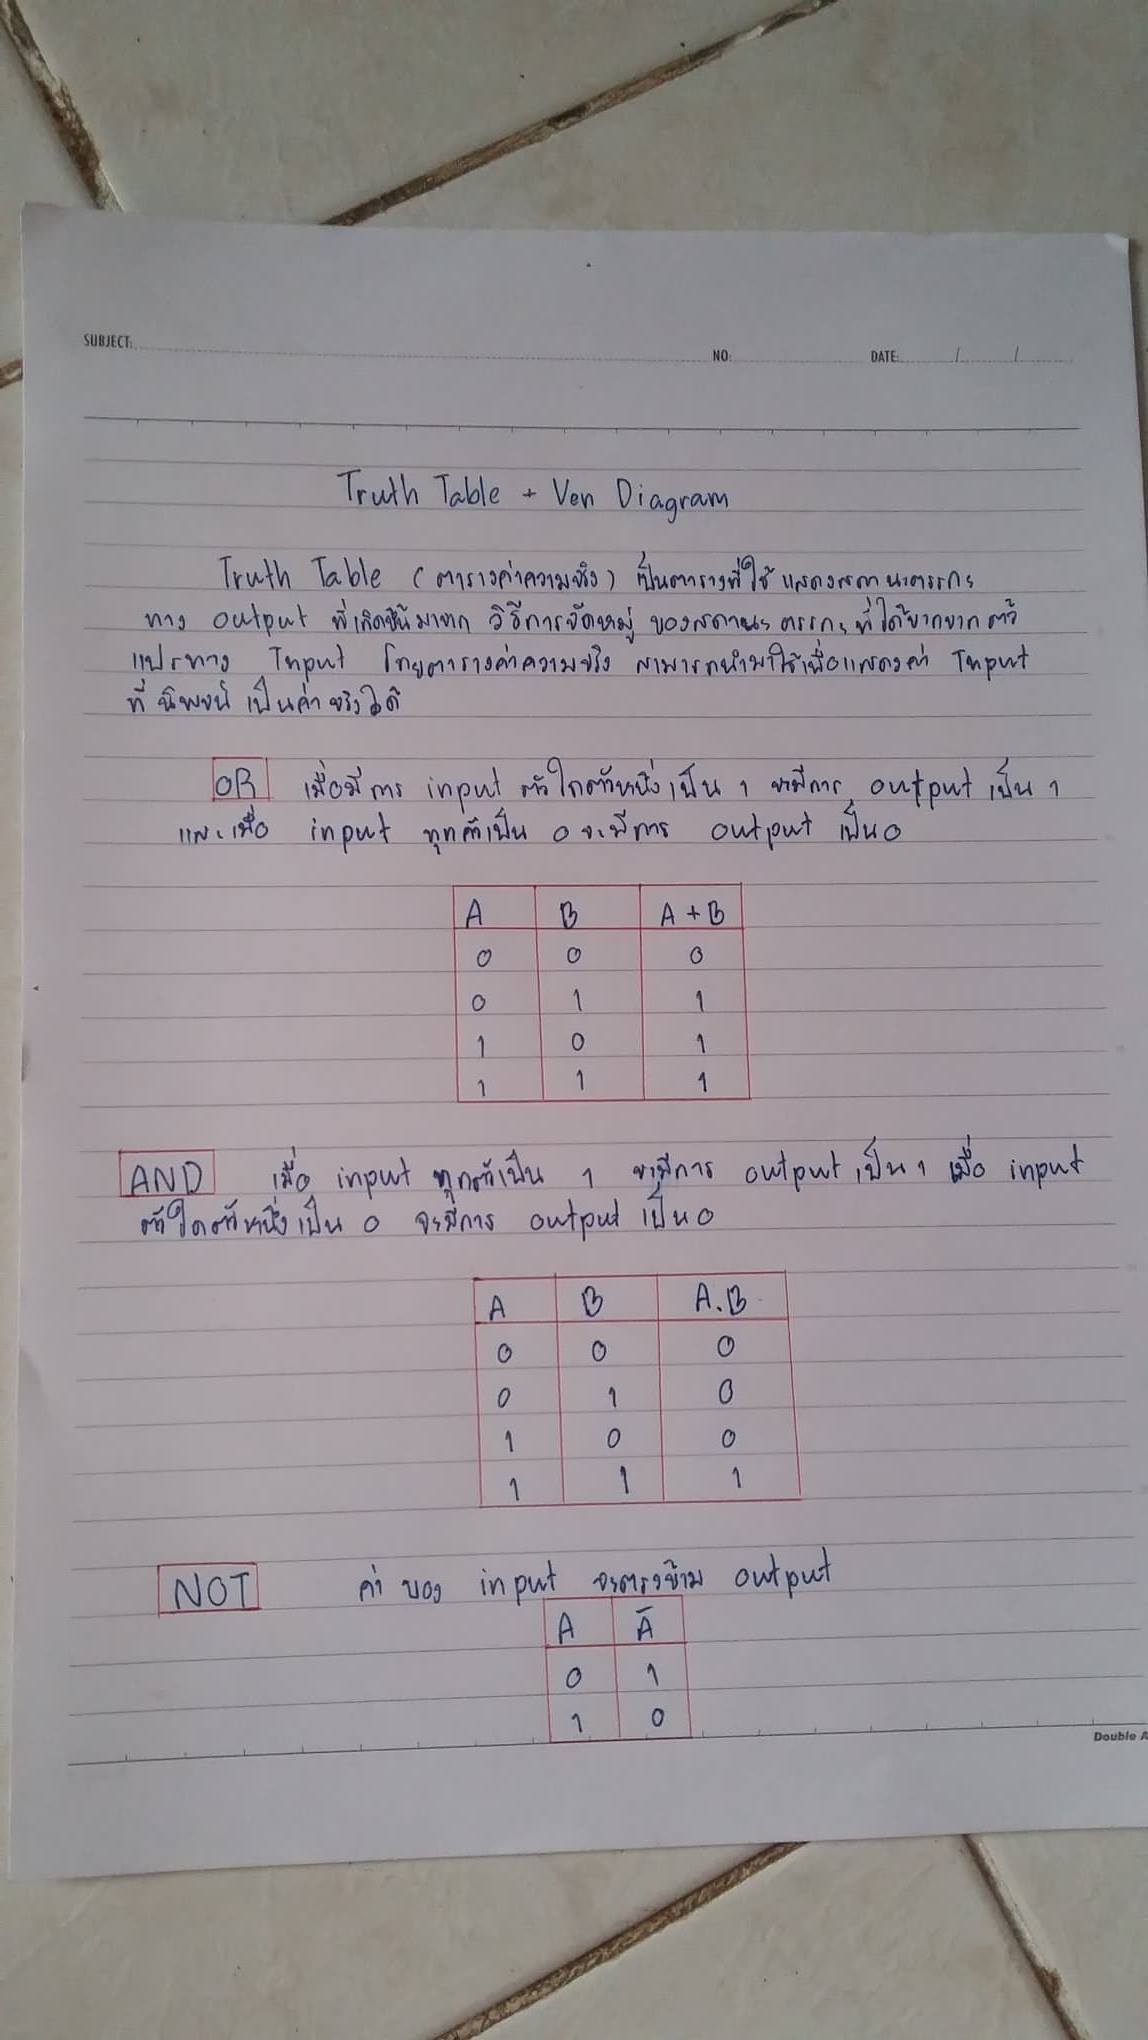 SUBJECT:
NO:
DATE: / /
Truth Table + Ven Diagram
Truth Table (ตารางค่าความจริง) เป็นตารางที่ใช้ แสดงสถานะตรรกะ
ทาง output ที่เกิดขึ้นมาจาก วิธีการจัดหมู่ ของสถานะ ตรรกะ ที่ได้มาจาก ตัว
แปรทาง Input โดยตารางค่าความจริง สามารถนำมาใช้เพื่อแสดงค่า Input
ที่ นิพจน์ เป็นค่า จริงได้
OR เมื่อมีการ input ตัวใดตัวหนึ่งเป็น 1 จะมีการ output เป็น 1
และเมื่อ input ทุกตัวเป็น 0 จะมีการ output เป็น 0
A B A + B
0 0 0
0 1 1
1 0 1
1 1 1
AND เมื่อ input ทุกตัวเป็น 1 จะมีการ output เป็น 1 เมื่อ input
ตัวใดตัวหนึ่งเป็น 0 จะมีการ output เป็น 0
A B A.B
0 0 0
0 1 0
1 0 0
1 1 1
NOT ค่า ของ input จะตรงข้าม output
A Ā
0 1
1 0
Double A